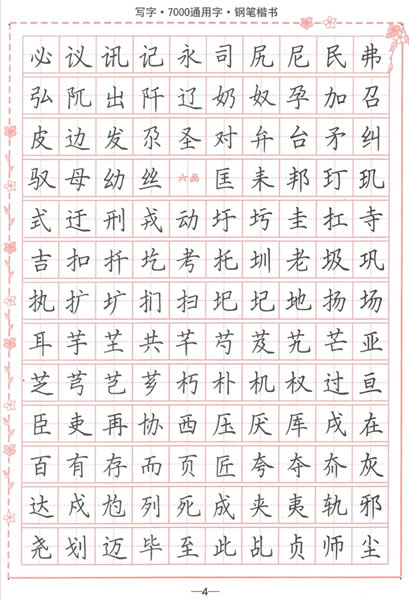 写字·7000通用字·钢笔楷书
必议讯记永司尻尼民弗
弘阢出阡辽奶奴孕加召
皮边发尕圣对弁台矛纠
驭母幼丝六画匡耒邦玎玑
式迂刑戎动圩圬圭扛寺
吉扣扦圪考托圳老圾巩
执扩圹扪扫圯圮地扬场
耳芋芏共芊芍芨芄芒亚
芝芎芑芗朽朴机权过亘
臣吏再协西压厌厍戌在
百有存而页匠夸夺夼灰
达戍尥列死成夹夷轨邪
尧划迈毕至此乩贞师尘
—4—